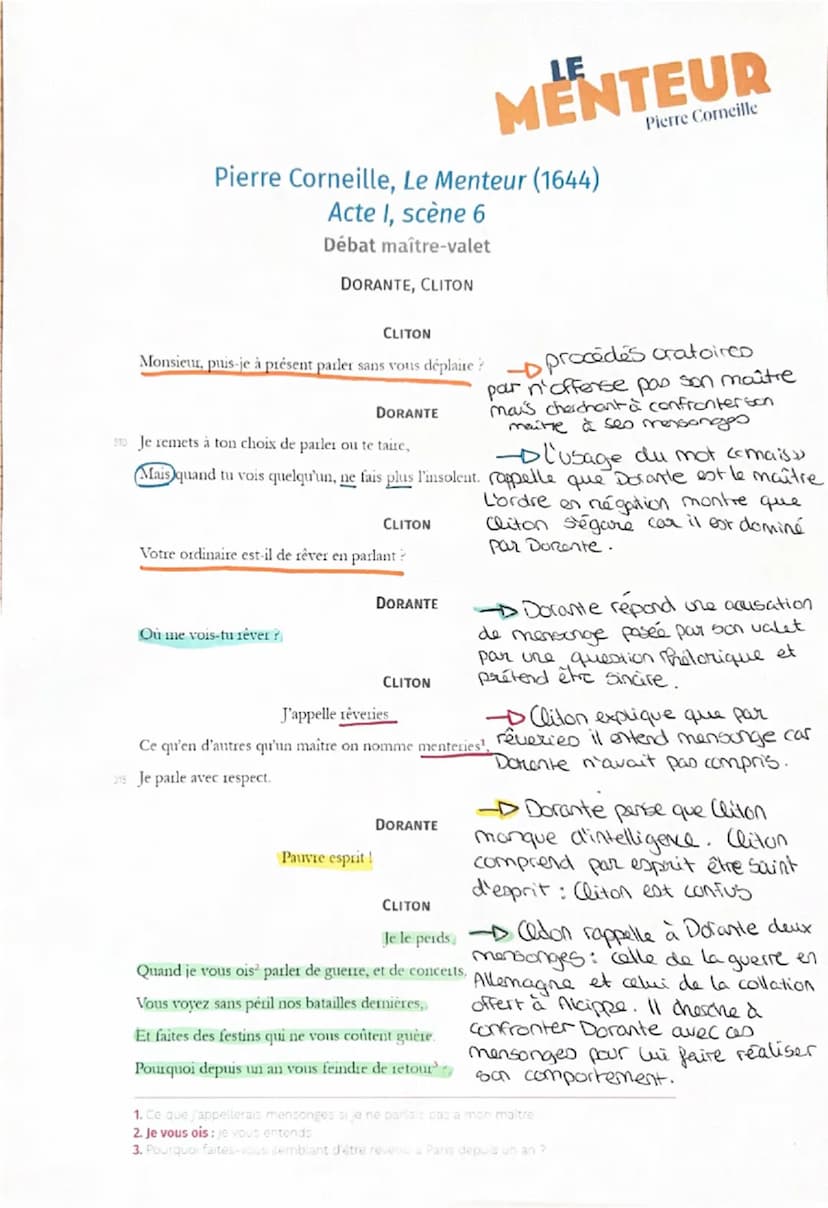 LE
MENTEUR
Pierre Corneille
Pierre Corneille, Le Menteur (1644)
Acte I, scène 6
Débat maître-valet
DORANTE, CLITON
CLITON
Monsieur, puis-je à présent parler sans vous déplaire ?
procédés oratoires
par n'offense pas son maître
mais cherchant à confronter son
maitre à ses mensonges
DORANTE
310 Je remets à ton choix de parler ou te taire,
Mais quand tu vois quelqu'un, ne fais plus l'insolent.
L'usage du mot «mais»
rappelle que Dorante est le maître
L'ordre en négation montre que
Cliton s'égare car il est dominé
par Dorante.
CLITON
Votre ordinaire est-il de rêver en parlant ?
DORANTE
Où me vois-tu rêver ?
Dorante répond une accusation
de mensonge posée par son valet
par une question rhétorique et
prétend être sincère.
CLITON
J'appelle rêveries
Ce qu'en d'autres qu'un maître on nomme menteries¹,
315 Je parle avec respect.
Cliton explique que par
rêveries il entend mensonge car
Dorante n'avait pas compris.
DORANTE
Pauvre esprit !
Dorante pense que Cliton
manque d'intelligence. Cliton
comprend par esprit être saint
d'esprit : Cliton est confus
CLITON
Je le perds,
Quand je vous ois² parler de guerre, et de concerts,
Vous voyez sans péril nos batailles dernières,
Et faites des festins qui ne vous coûtent guère.
Pourquoi depuis un an vous feindre de retour³ ?
Cliton rappelle à Dorante deux
mensonges : celle de la guerre en
Allemagne et celui de la collation
offert à Alcippe. Il cherche à
confronter Dorante avec ces
mensonges pour lui faire réaliser
son comportement.
1. Ce que j'appellerais mensonges si je ne parlais pas à mon maître
2. Je vous ois : je vous entends
3. Pourquoi faites-vous semblant d'être revenu à Paris depuis un an ?